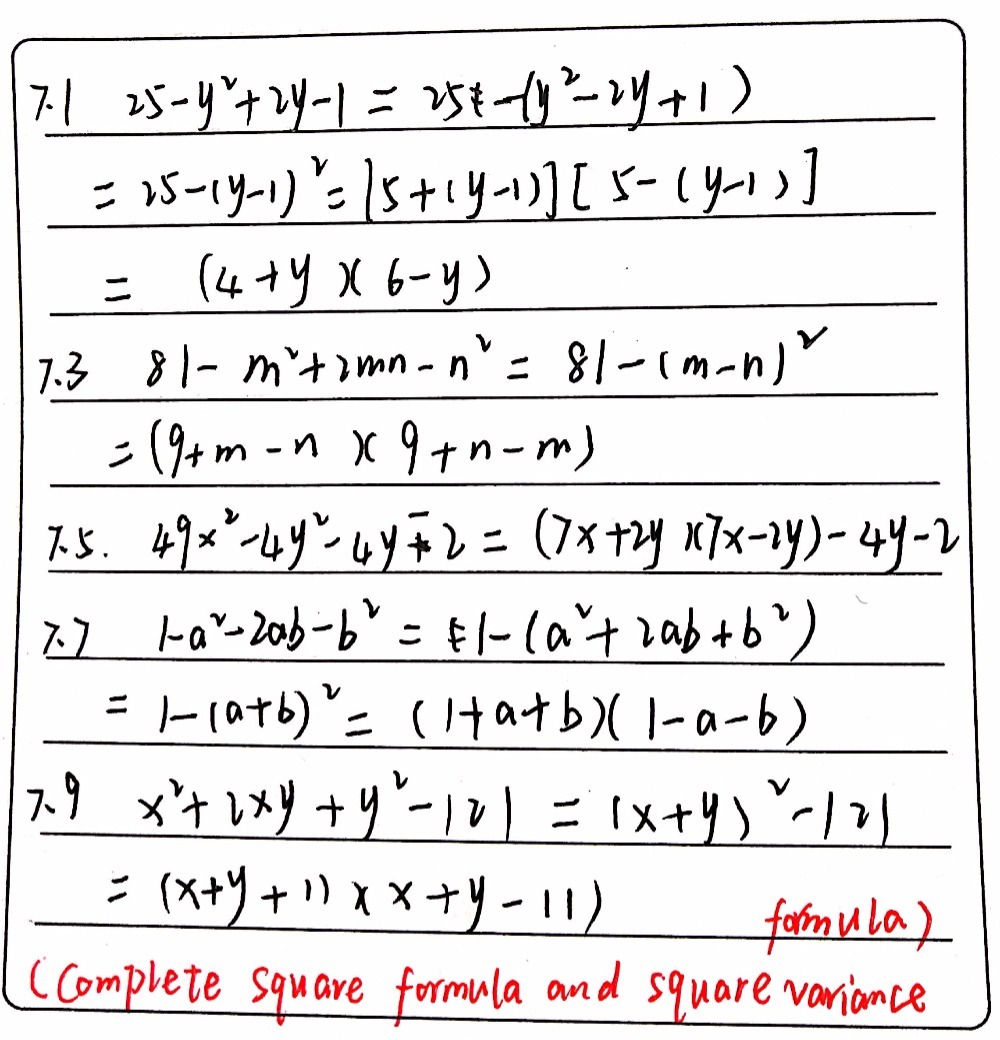 7.1 25-y²+2y-1 = 25-(y²-2y+1)
= 25-(y-1)² = [5+(y-1)][5-(y-1)]
= (4+y)(6-y)
7.3 81-m²+2mn-n² = 81-(m-n)²
= (9+m-n)(9+n-m)
7.5. 49x²-4y²-4y-2 = (7x+2y)(7x-2y)-4y-2
7.7 1-a²-2ab-b² = 1-(a²+2ab+b²)
= 1-(a+b)² = (1+a+b)(1-a-b)
7.9 x²+2xy+y²-121 = (x+y)²-121
= (x+y+11)(x+y-11)
(Complete square formula and square variance
formula)